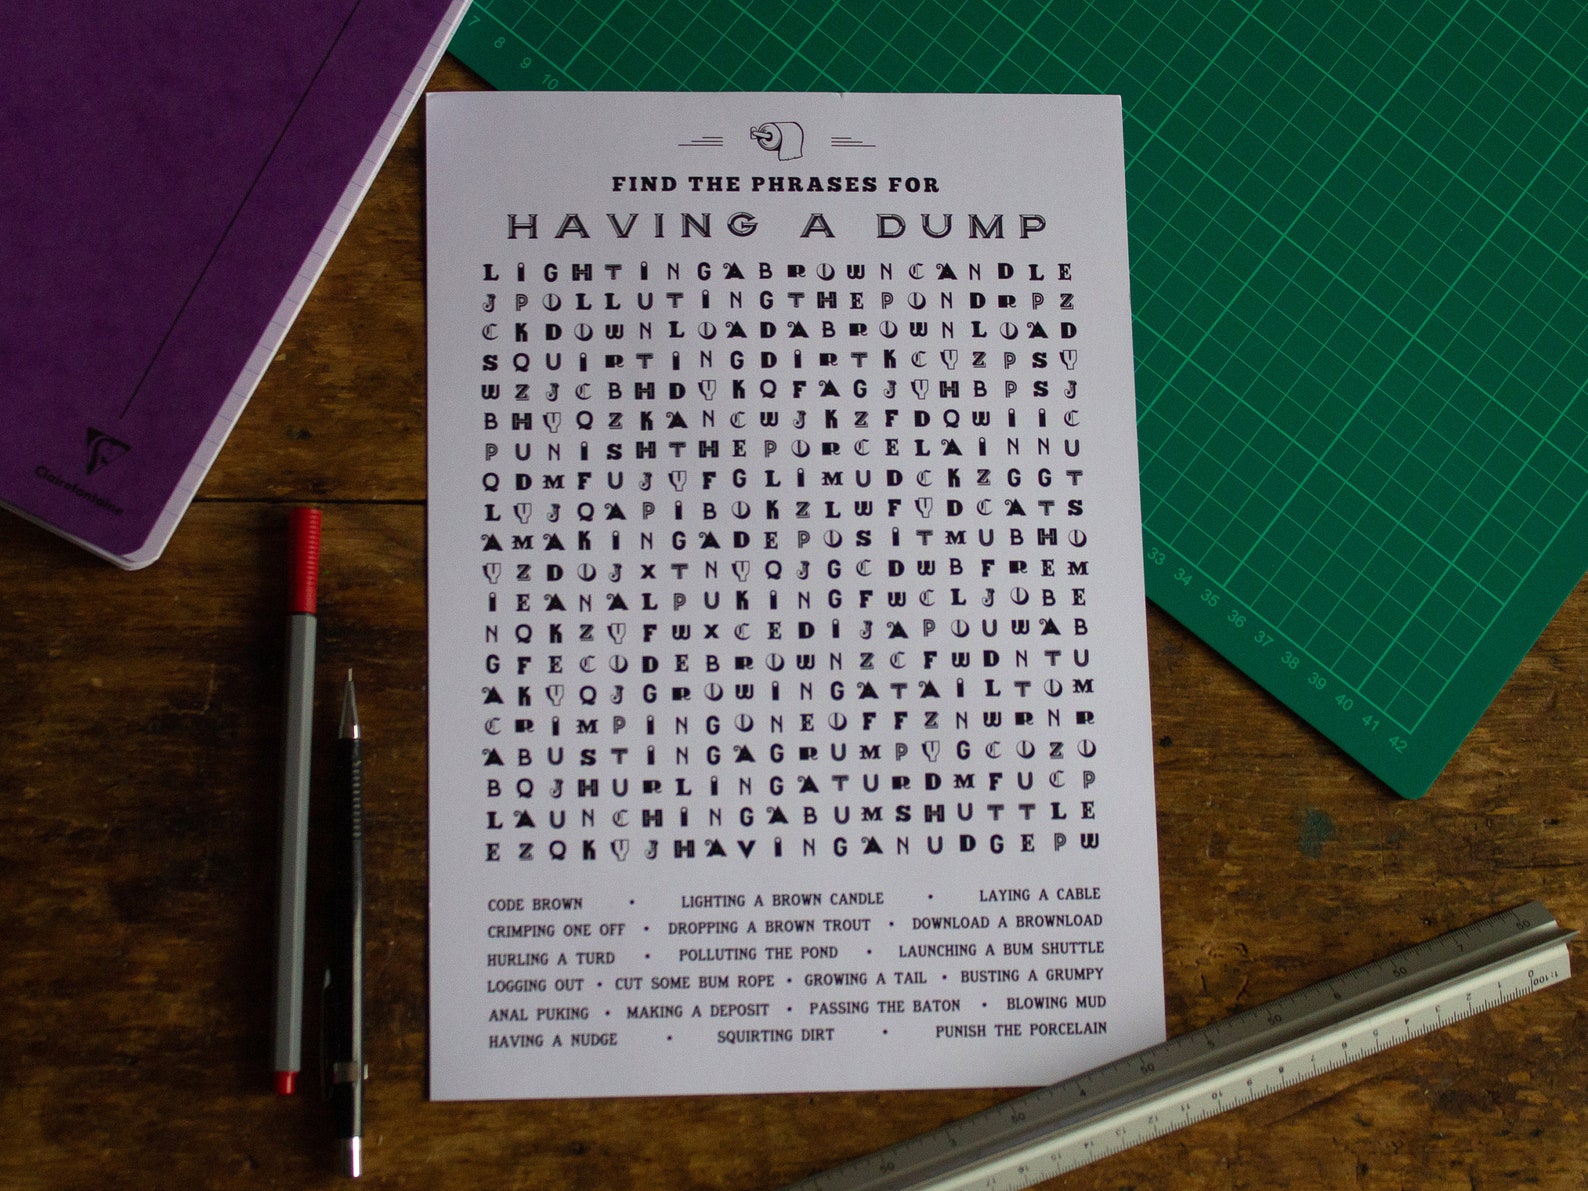 FIND THE PHRASES FOR
HAVING A DUMP
L I G H T I N G A B R O W N C A N D L E
J P O L L U T I N G T H E P O N D R P Z
C K D O W N L O A D A B R O W N L O A D
S Q U I R T I N G D I R T K C Y Z P S Y
W Z J C B H D Y K Q F A G J Y H B P S J
B H Y Q Z K A N C W J K Z F D Q W I I C
P U N I S H T H E P O R C E L A I N N U
Q D M F U J Y F G L I M U D C K Z G G T
L Y J Q A P I B O K Z L W F Y D C A T S
A M A K I N G A D E P O S I T M U B H O
Y Z D O J X T N Y Q J G C D W B F R E M
I E A N A L P U K I N G F W C L J O B E
N Q K Z Y F W X C E D I J A P O U W A B
G F E C O D E B R O W N Z C F W D N T U
A K Y Q J G R O W I N G A T A I L T O M
C R I M P I N G O N E O F F Z N W R N R
A B U S T I N G A G R U M P Y G C O Z O
B Q J H U R L I N G A T U R D M F U C P
L A U N C H I N G A B U M S H U T T L E
E Z Q K Y J H A V I N G A N U D G E P W
CODE BROWN • LIGHTING A BROWN CANDLE • LAYING A CABLE
CRIMPING ONE OFF • DROPPING A BROWN TROUT • DOWNLOAD A BROWNLOAD
HURLING A TURD • POLLUTING THE POND • LAUNCHING A BUM SHUTTLE
LOGGING OUT • CUT SOME BUM ROPE • GROWING A TAIL • BUSTING A GRUMPY
ANAL PUKING • MAKING A DEPOSIT • PASSING THE BATON • BLOWING MUD
HAVING A NUDGE • SQUIRTING DIRT • PUNISH THE PORCELAIN
Clairefontaine
7 8 9 10
33 34 35 36 37 38 39 40 41 42
1:100